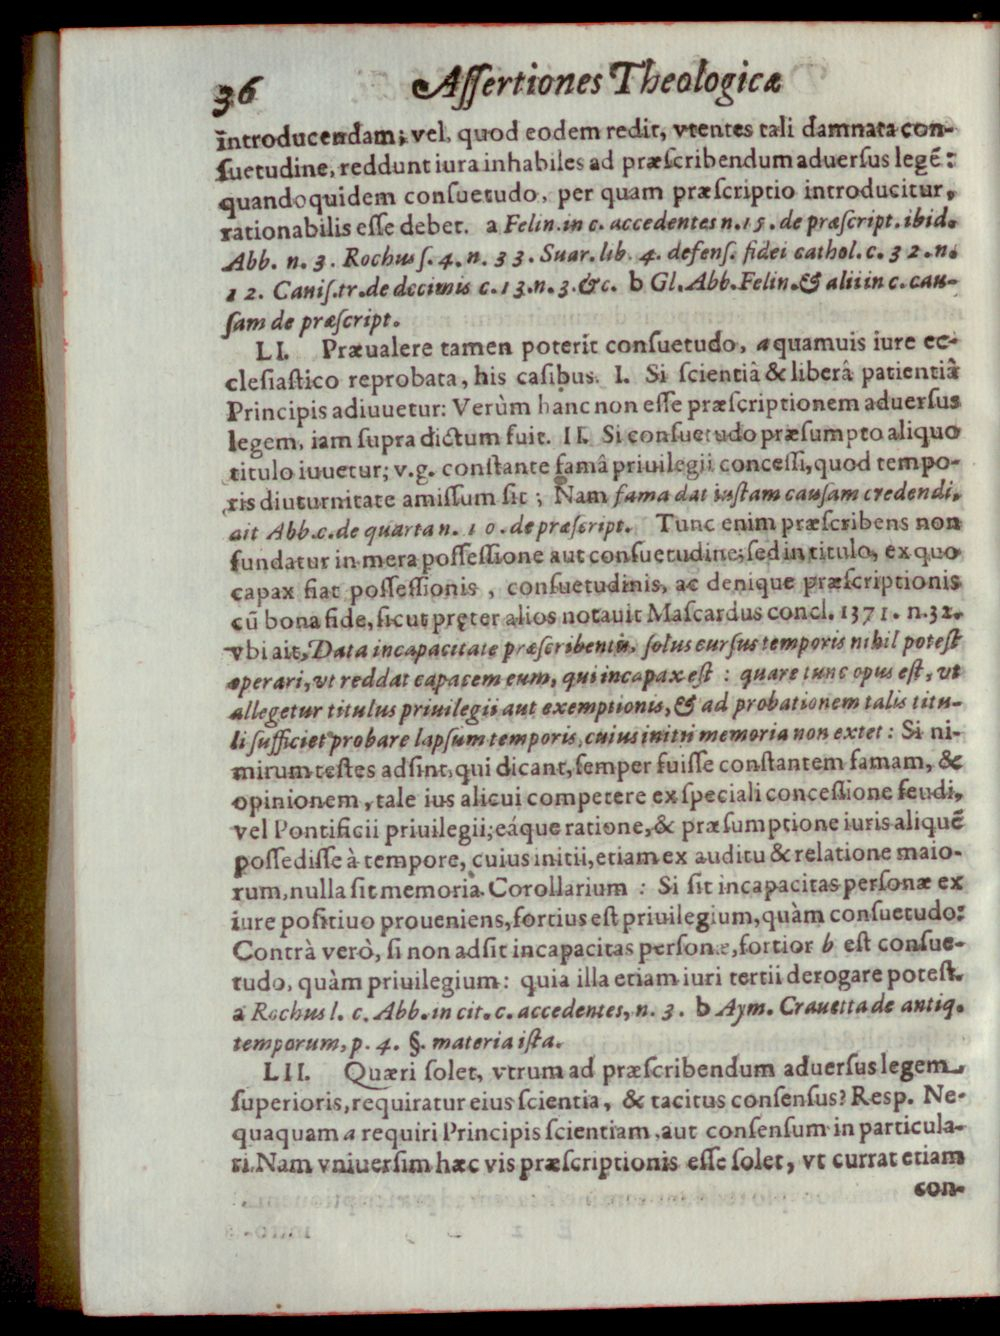 36 Aſſertiones Theologicæ
introducendam; vel, quod eodem redit, vtentes tali damnata con-
ſuetudine, reddunt iura inhabiles ad præſcribendum aduerſus legẽ:
quandoquidem conſuetudo, per quam præſcriptio introducitur,
rationabilis eſſe debet. a Felin. in c. accedentes n. 15. de præſcript. ibid.
Abb. n. 3. Rochus ſ. 4. n. 33. Suar. lib. 4. defenſ. fidei cathol. c. 32. n.
12. Caniſ. tr. de decimis c. 13. n. 3. &c. b Gl. Abb. Felin. & alii in c. cau-
ſam de præſcript.
LI. Præualere tamen poterit conſuetudo, a quamuis iure ec-
cleſiaſtico reprobata, his caſibus. I. Si ſcientiâ & liberâ patientiâ
Principis adiuuetur: Verùm hanc non eſſe præſcriptionem aduerſus
legem, iam ſupra dictum fuit. II. Si conſuetudo præſumpto aliquo
titulo iuuetur; v.g. conſtante famâ priuilegii conceſſi, quod tempo-
ris diuturnitate amiſſum ſit; Nam fama dat iuſtam cauſam credendi,
ait Abb. c. de quarta n. 10. de præſcript. Tunc enim præſcribens non
fundatur in mera poſſeſſione aut conſuetudine; ſed in titulo, ex quo
capax fiat poſſeſſionis, conſuetudinis, ac denique præſcriptionis
cũ bona fide, ſicut pręter alios notauit Maſcardus concl. 1371. n. 32.
vbi ait, Data incapacitate præſcribentis, ſolus curſus temporis nihil poteſt
operari, vt reddat capacem eum, qui incapax eſt: quare tunc opus eſt, vt
allegetur titulus priuilegii aut exemptionis, & ad probationem talis titu-
li ſufficiet probare lapſum temporis, cuius initii memoria non extet: Si ni-
mirum teſtes adſint, qui dicant, ſemper fuiſſe conſtantem famam, &
opinionem, tale ius alicui competere ex ſpeciali conceſſione feudi,
vel Pontificii priuilegii; eáque ratione, & præſumptione iuris aliquẽ
poſſediſſe à tempore, cuius initii, etiam ex auditu & relatione maio-
rum, nulla ſit memoria. Corollarium: Si ſit incapacitas perſonæ ex
iure poſitiuo proueniens, fortius eſt priuilegium, quàm conſuetudo:
Contrà verò, ſi non adſit incapacitas perſonæ, fortior b eſt conſue-
tudo, quàm priuilegium: quia illa etiam iuri tertii derogare poteſt.
a Rochus l. c. Abb. in cit. c. accedentes, n. 3. b Aym. Crauetta de antiq.
temporum, p. 4. §. materia iſta.
LII. Quæri ſolet, vtrum ad præſcribendum aduerſus legem
ſuperioris, requiratur eius ſcientia, & tacitus conſenſus? Reſp. Ne-
quaquam a requiri Principis ſcientiam, aut conſenſum in particula-
ri. Nam vniuerſim hæc vis præſcriptionis eſſe ſolet, vt currat etiam
con-